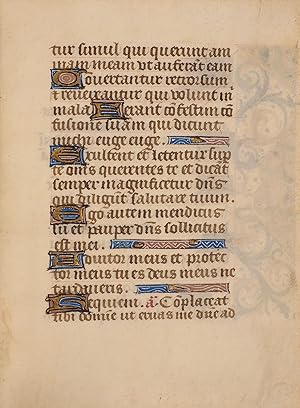 tur simul qui querunt ani
mam meam ut auferãt eam
Convertantur retrorsum
et revereantur qui volunt in
mala Ferant cõfestim cõ
fusione suam qui dicunt
michi euge euge.
Exultent et letentur sup
te om̃s querentes te et dicãt
semper magnificetur dñs
qui diligũt salutare tuum.
Ego autem mendicus
sũ et pauper dñs sollicitus
est mei.
Adiutor meus et protec
tor meus tu es deus meus ne
tardaveris.
Requiem. a. Cõplaceat
tibi domĩe ut eruas me dñe ad